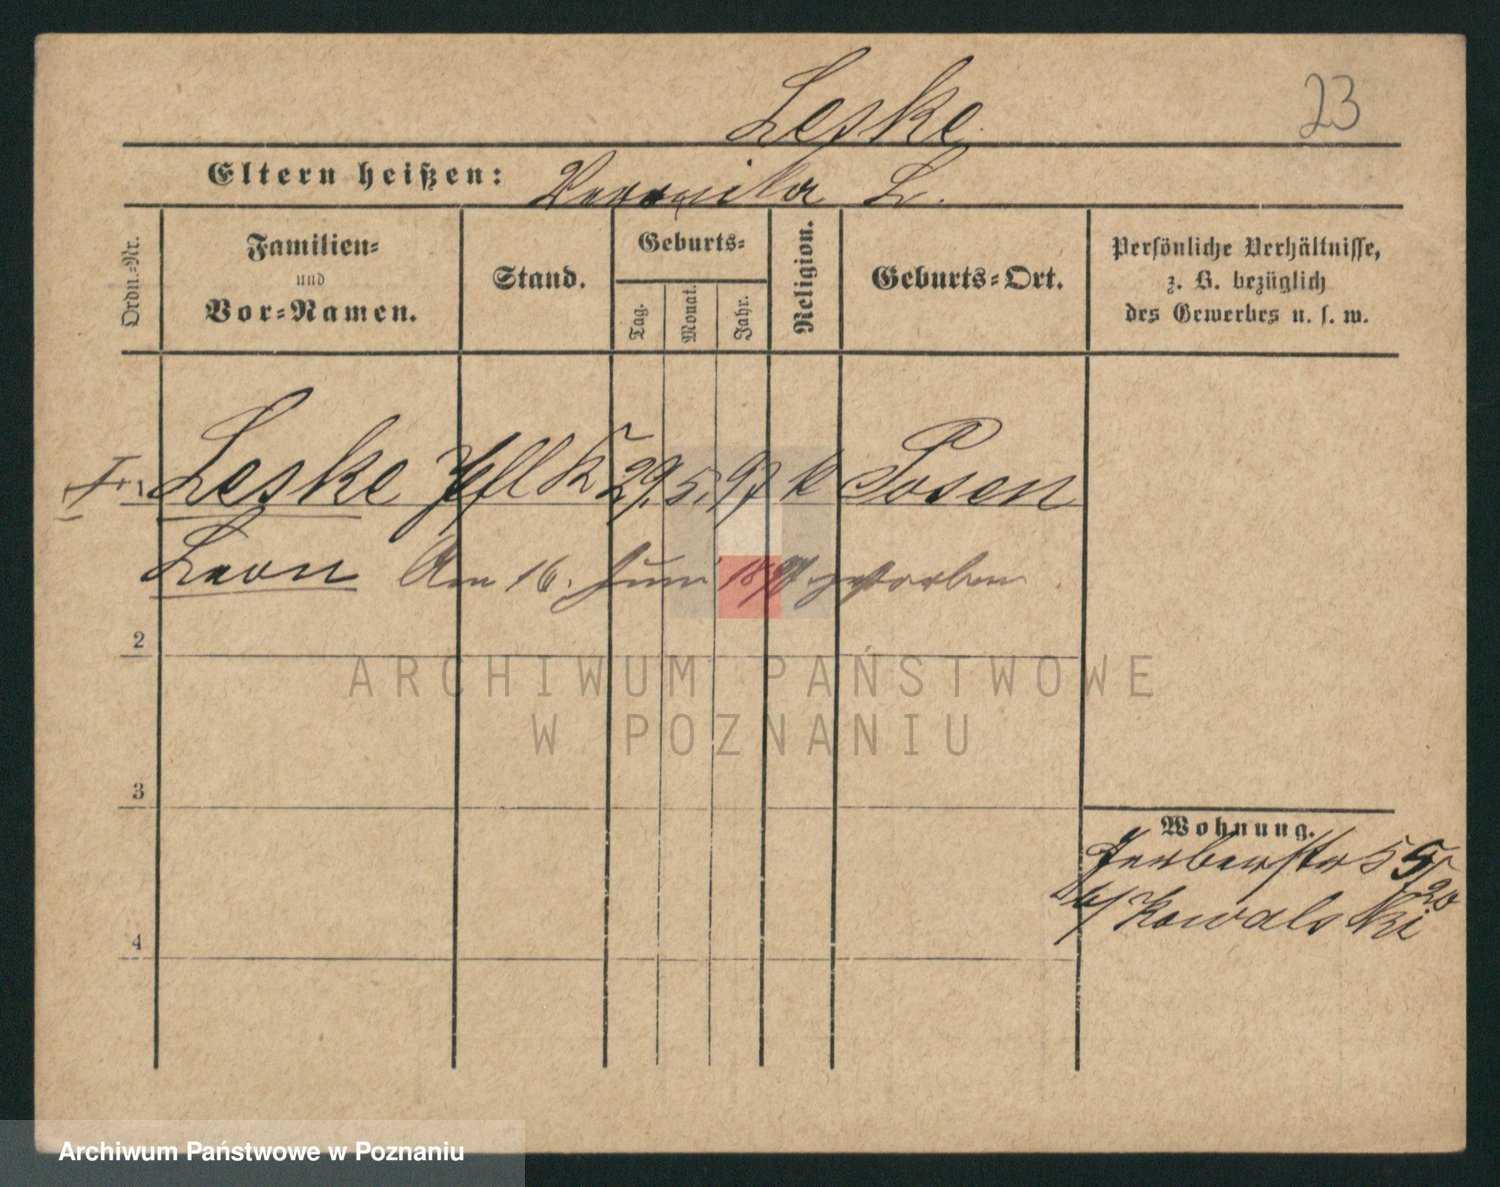 Leske
23
Eltern heißen: Veronika L.
Ordn.-Nr.
Familien- und Vor-Namen.
Stand.
Geburts-
Tag.
Monat.
Jahr.
Religion.
Geburts-Ort.
Persönliche Verhältnisse,
z. B. bezüglich
des Gewerbes u. s. w.
Leske Pfl K 29. 5. 97 k Posen
Leon Am 16. Juni 1897 gestorben
2
ARCHIWUM PAŃSTWOWE
W POZNANIU
3
Wohnung.
Gerberstr 5
b/ Kowalski
4
Archiwum Państwowe w Poznaniu